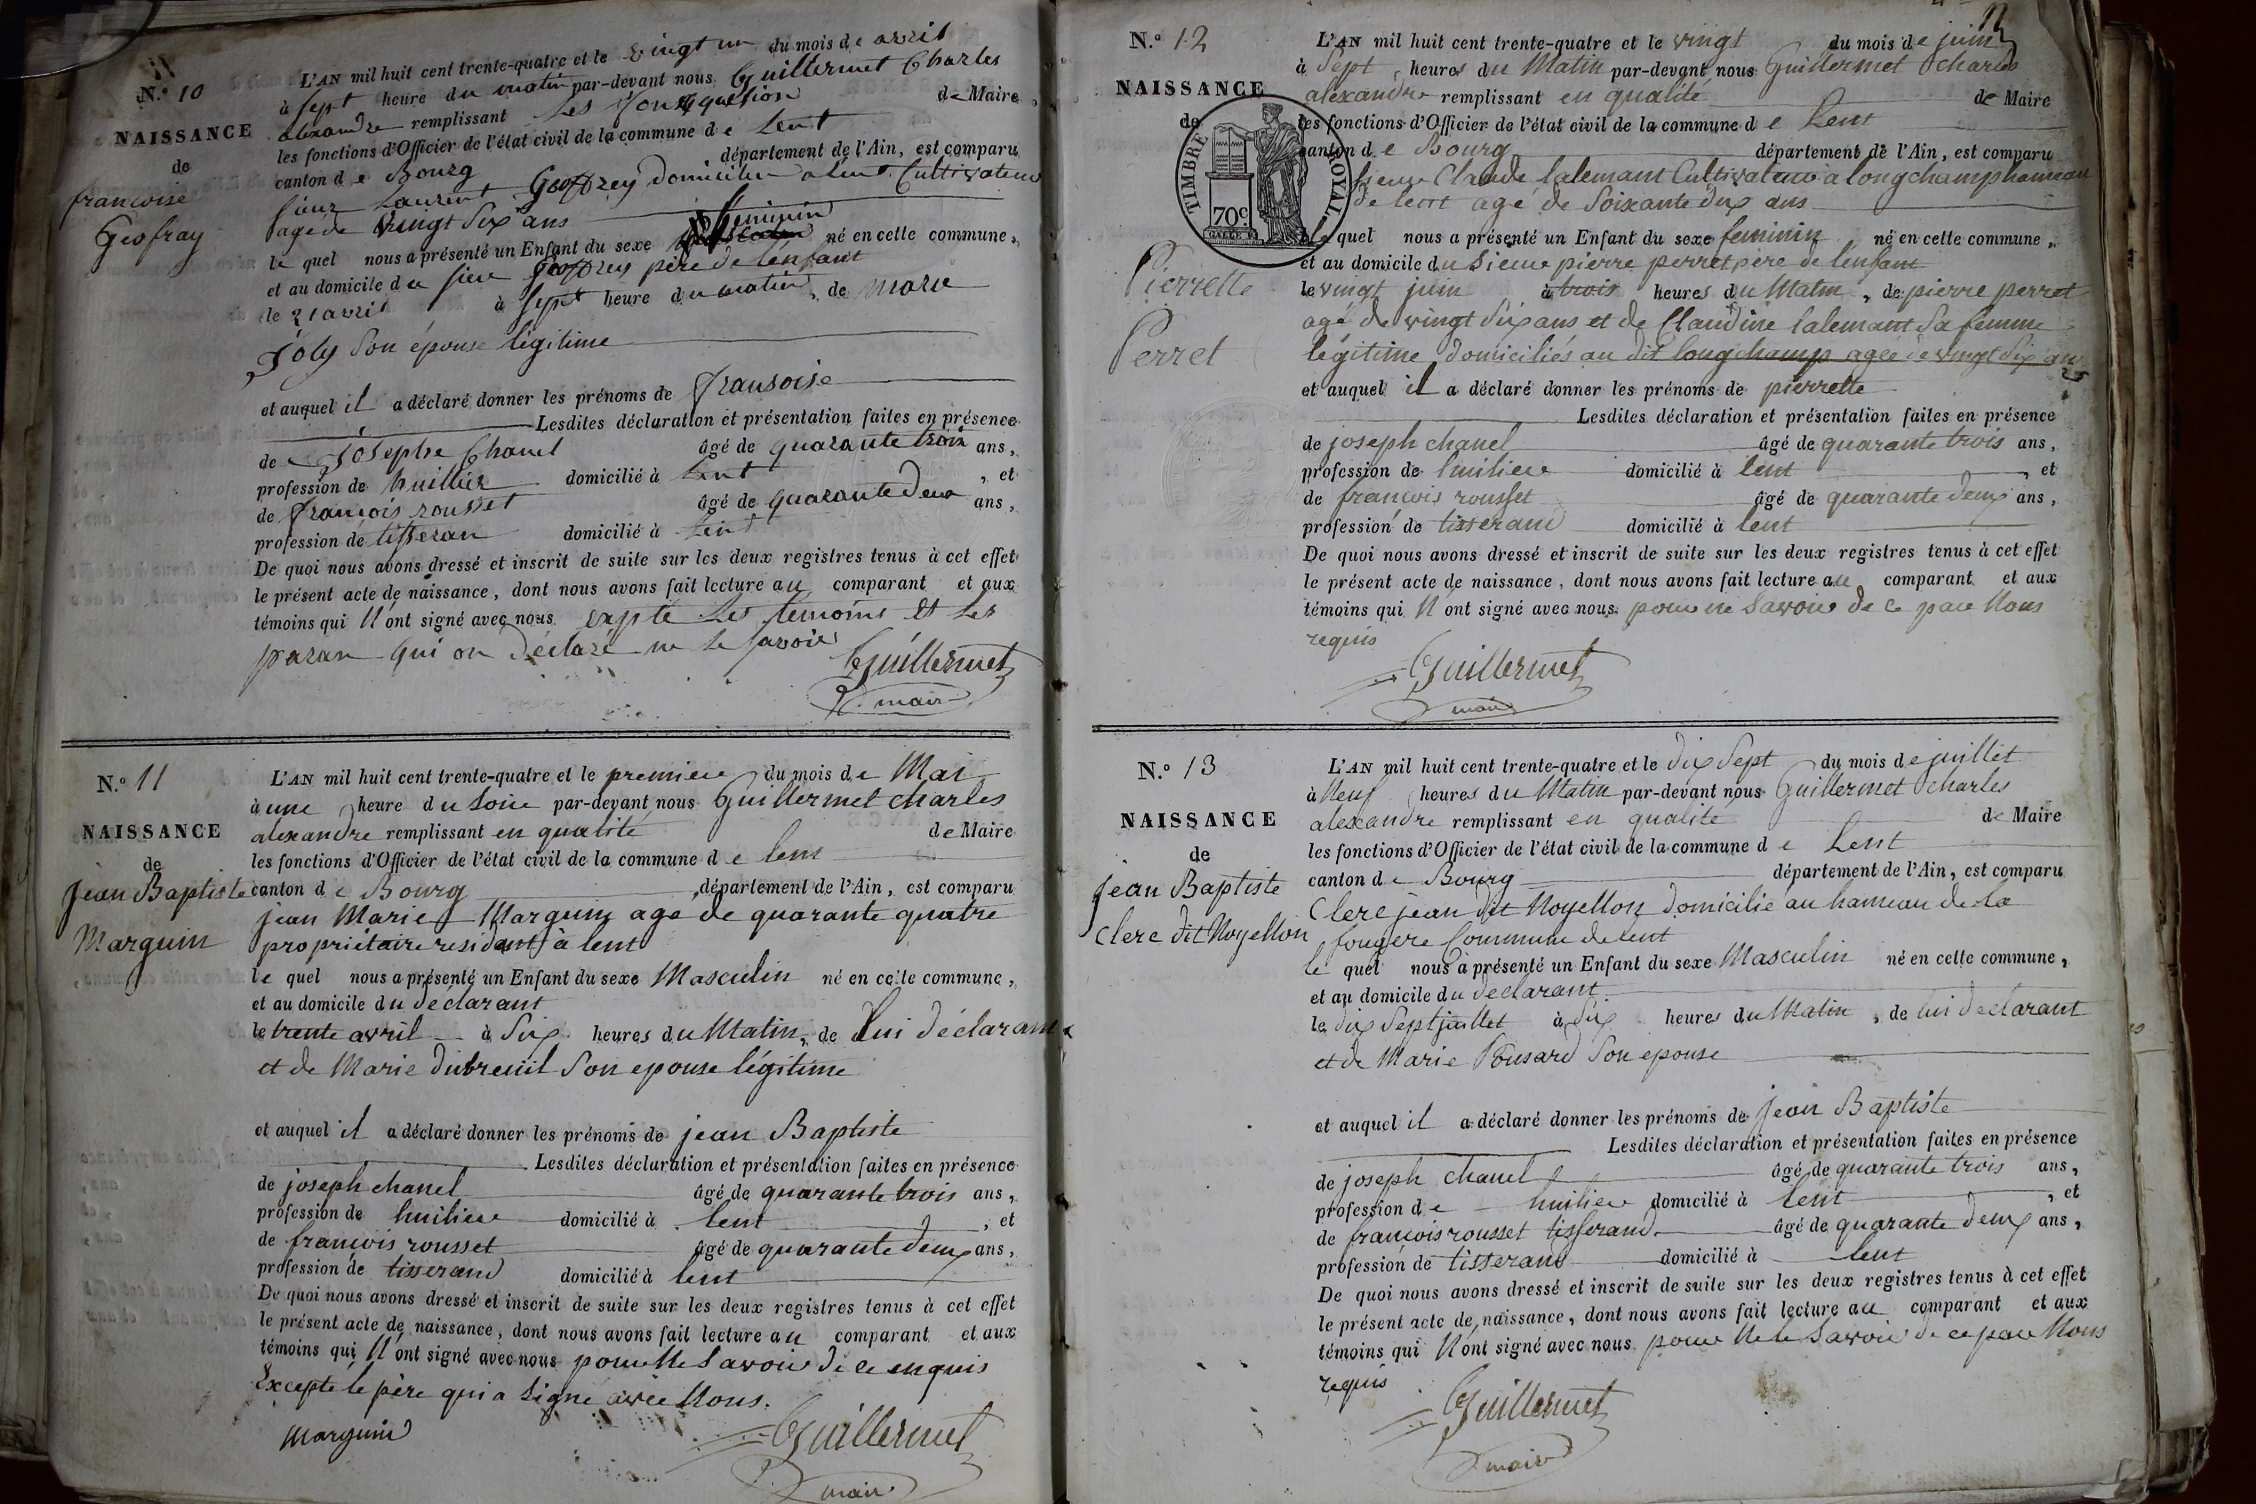 N.° 10
NAISSANCE
de
francoise
Geofray
L'AN mil huit cent trente-quatre et le vingt un du mois de avril
à sept heure du matin par-devant nous Guillermet Charles
alexandre remplissant les de Maire
les fonctions d'Officier de l'état civil de la commune de Lent
canton de Bourg département de l'Ain, est comparu
sieur Laurent Geoffrey domicilier a lent Cultivateur
agé de vingt six ans
le quel nous a présenté un Enfant du sexe feminin né en cette commune,
et au domicile du sieur Geoffrey père de lenfant
le 21 avril à sept heure du matin, de marie
joly son épouse légitime
et auquel il a déclaré donner les prénoms de fransoise
Lesdites déclaration et présentation faites en présence
de Josephe Chanel âgé de quarante trois ans,
profession de huillier domicilié à Lent, et
de françois rousset âgé de quarante deux ans,
profession de tisseran domicilié à Lent
De quoi nous avons dressé et inscrit de suite sur les deux registres tenus à cet effet
le présent acte de naissance, dont nous avons fait lecture au comparant et aux
témoins qui N'ont signé avec nous expté les temoins et les
paran qui on déclaré ne le savoir
Guillermet
mair
N.° 11
NAISSANCE
de
jean Baptiste
Marguin
L'AN mil huit cent trente-quatre et le premiere du mois de Mai
à une heure du soir par-devant nous Guillermet charles
alexandre remplissant en qualité de Maire
les fonctions d'Officier de l'état civil de la commune de lent
canton de Bourg, département de l'Ain, est comparu
jean Marie Marguin age de quarante quatre
propriétaire residant à lent
le quel nous a présenté un Enfant du sexe Masculin né en cette commune,
et au domicile du déclarant
le trente avril à six heures du Matin, de lui déclarant
et de Marie dubreuil son epouse légitime
et auquel il a déclaré donner les prénoms de jean Baptiste
Lesdites déclaration et présentation faites en présence
de joseph chanel âgé de quarante trois ans,
profession de huiliere domicilié à lent, et
de françois rousset âgé de quarante deux ans,
profession de tisserand domicilié à lent
De quoi nous avons dressé et inscrit de suite sur les deux registres tenus à cet effet
le présent acte de naissance, dont nous avons fait lecture au comparant et aux
témoins qui N'ont signé avec nous pour Ne savoir de ce enquis
Excepté le père qui a signé avec Nous.
Marguin
Guillermet
mair
12
N.° 12
NAISSANCE
de
TIMBRE ROYAL
70c
Pierrette
Perret
L'AN mil huit cent trente-quatre et le vingt du mois de juin
à Sept heures du Matin par-devant nous Guillermet charles
alexandre remplissant en qualité de Maire
les fonctions d'Officier de l'état civil de la commune de Lent
canton de Bourg département de l'Ain, est comparu
sieur Claude lalemant Cultivateur a longchamp hameau
de lent agé de soixante dix ans
le quel nous a présenté un Enfant du sexe feminin né en cette commune,
et au domicile du sieur pierre perret père de lenfant
le vingt juin à trois heures du Matin, de pierre perret
agé de vingt six ans et de Claudine lalemant sa femme
légitime domiciliés au dit longchamp agée de vingt six ans
et auquel il a déclaré donner les prénoms de pierrette
Lesdites déclaration et présentation faites en présence
de joseph chanel âgé de quarante trois ans,
profession de huiliere domicilié à lent, et
de françois rousset âgé de quarante deux ans,
profession de tisserand domicilié à lent
De quoi nous avons dressé et inscrit de suite sur les deux registres tenus à cet effet
le présent acte de naissance, dont nous avons fait lecture au comparant et aux
témoins qui N'ont signé avec nous pour ne savoir de ce par Nous
requis
Guillermet
mair
N.° 13
NAISSANCE
de
jean Baptiste
Clerc dit Noyellon
L'AN mil huit cent trente-quatre et le dix Sept du mois de juillet
à Neuf heures du Matin par-devant nous Guillermet charles
alexandre remplissant en qualité de Maire
les fonctions d'Officier de l'état civil de la commune de Lent
canton de Bourg département de l'Ain, est comparu
Clerc jean dit Noyellon domicilié au hameau de la
fougere Commune de lent
le quel nous à présenté un Enfant du sexe Masculin né en cette commune,
et au domicile du declarant
le dix Sept juillet à dix heures du Matin, de lui declarant
et de Marie Ponsard son epouse
et auquel il a déclaré donner les prénoms de jean Baptiste
Lesdites déclaration et présentation faites en présence
de joseph chanel âgé de quarante trois ans,
profession de huiliere domicilié à lent, et
de françois rousset tisserand âgé de quarante deux ans,
profession de tisserand domicilié à lent
De quoi nous avons dressé et inscrit de suite sur les deux registres tenus à cet effet
le présent acte de naissance, dont nous avons fait lecture au comparant et aux
témoins qui N'ont signé avec nous pour Ne le savoir de ce par Nous
requis
Guillermet
mair